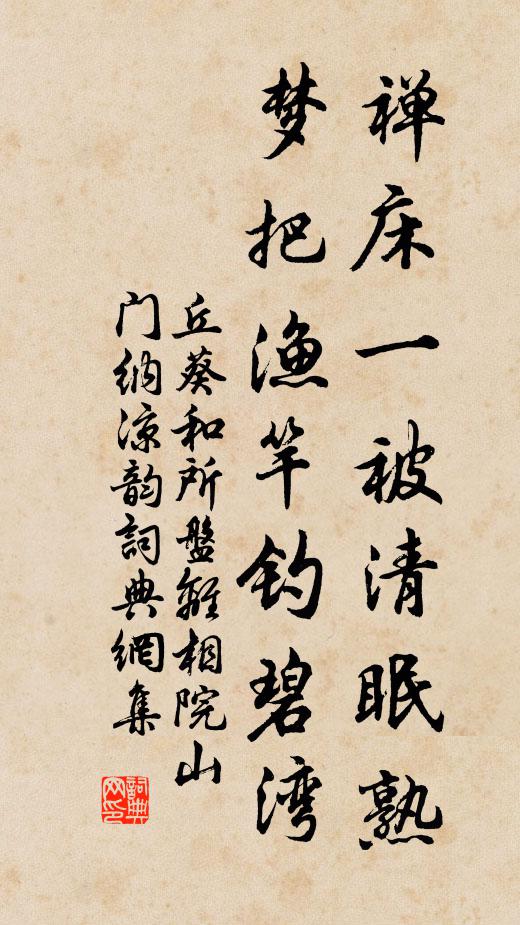 禅床一被清眠熟
梦把渔竿钓碧湾
丘葵和所盤離相院山
门纳凉韵詞典網集
詞典网印